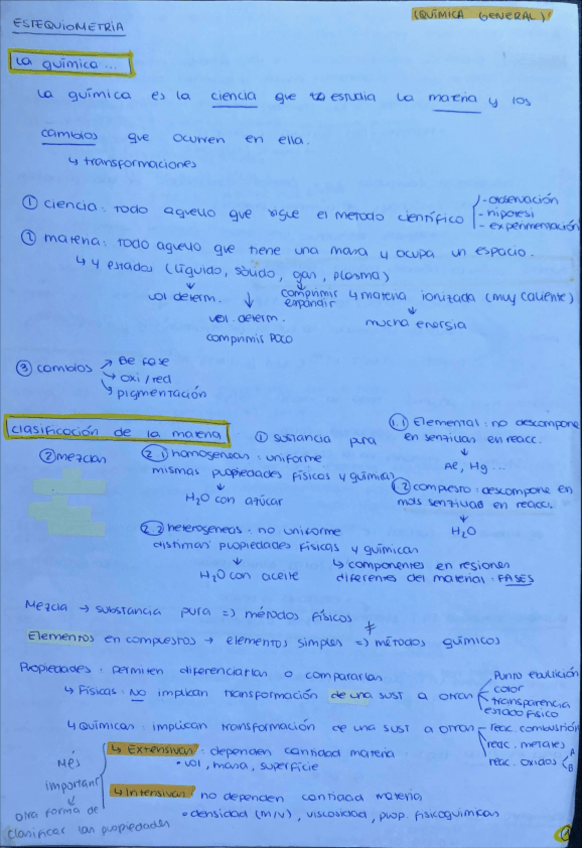 (QUÍMICA GENERAL)
ESTEQUIOMETRÍA
La química ...
La química es la ciencia que estudia la materia y los
cambios que ocurren en ella.
↳ transformaciones
① ciencia: todo aquello que sigue el método científico
- observación
- hipotesi
- experimentación
② materia: todo aquello que tiene una masa y ocupa un espacio.
↳ 4 estados (líquido, sólido, gas, plasma)
vol determ.
comprimir
expandir
↳ materia ionizada (muy caliente)
vol. determ.
comprimir POCO
mucha energía
③ cambios
De fase
oxi/red
pigmentación
clasificación de la materia
① sustancia pura
1.1 Elemental: no descompone
en sencillas en reacc.
Al, Hg ...
1.2 compuesto: descompone en
más sencillas en reacc.
H₂O
② mezclas
2.1 homogeneas: uniforme
mismas propiedades físicas y químicas
H₂O con azúcar
2.2 heterogeneas: no uniforme
distintas propiedades físicas y químicas
H₂O con aceite
↳ componentes en regiones
diferentes del material: FASES
Mezcla → substancia pura => métodos físicos
≠
Elementos en compuestos → elementos simples => métodos químicos
Propiedades: permiten diferenciarlas o compararlas
↳ Físicas: NO implican transformación de una sust a otras
Punto ebullición
color
transparencia
estado físico
↳ Químicas: implican transformación de una sust a otras
reac. combustión
reac. metales
reac. óxidos
A
B
Més
important
↳ Extensivas: dependen cantidad materia
• vol, masa, superficie
↳ Intensivas: no dependen cantidad materia
• densidad (m/v), viscosidad, prop. fisicoquímicas
otra forma de
clasificar las propiedades